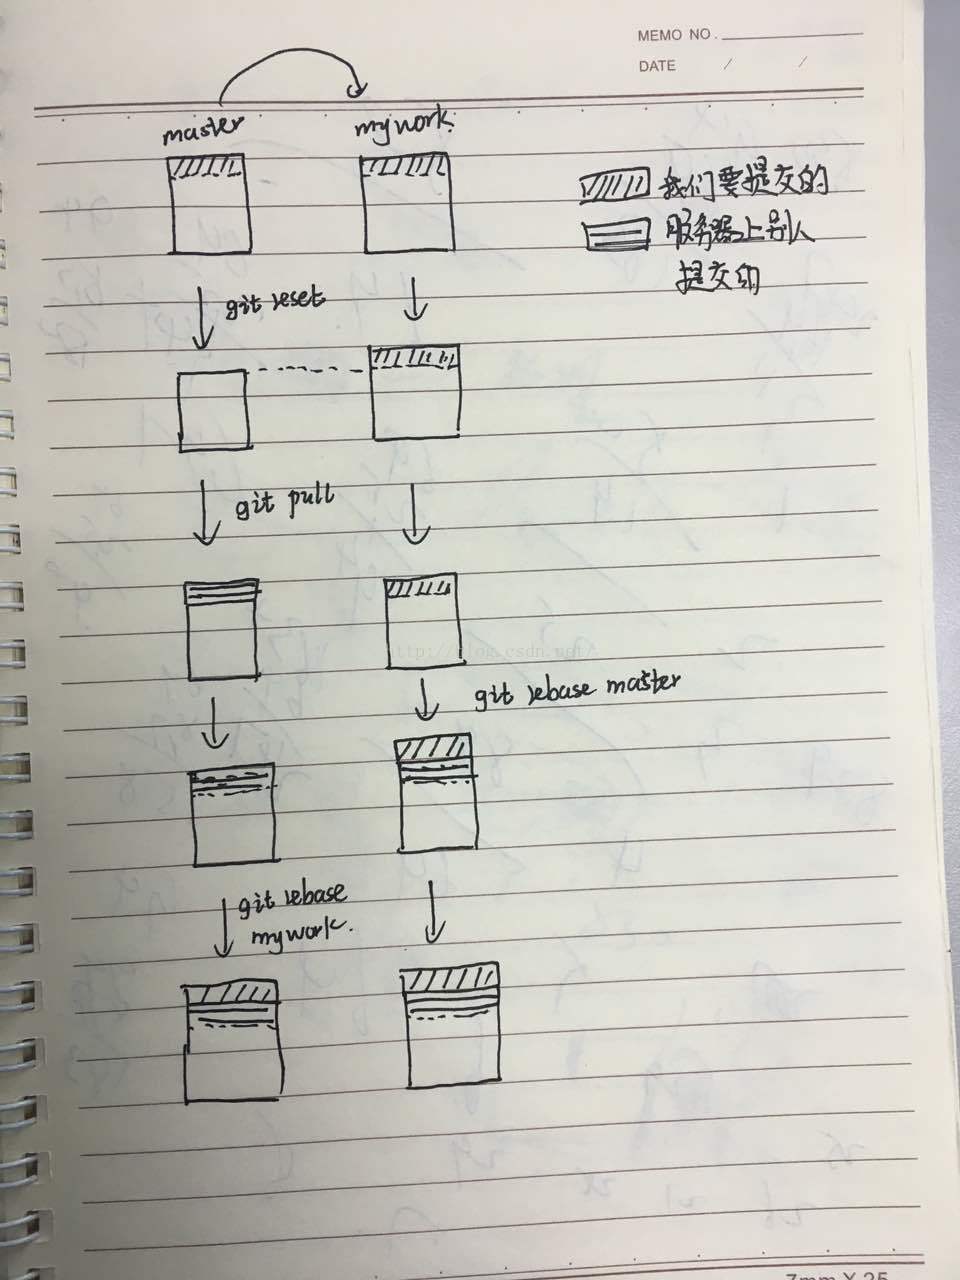 MEMO NO.
DATE / /
master
mywork.
我们要提交的
服务器上别人
提交的
git reset
git pull
http://blog.csdn.net/
git rebase master
git rebase
mywork.
7mm X 25